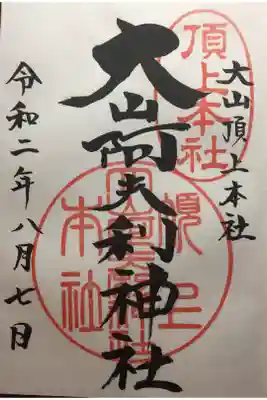 大山頂上本社
頂上本社
大山阿夫利神社
令和二年八月七日